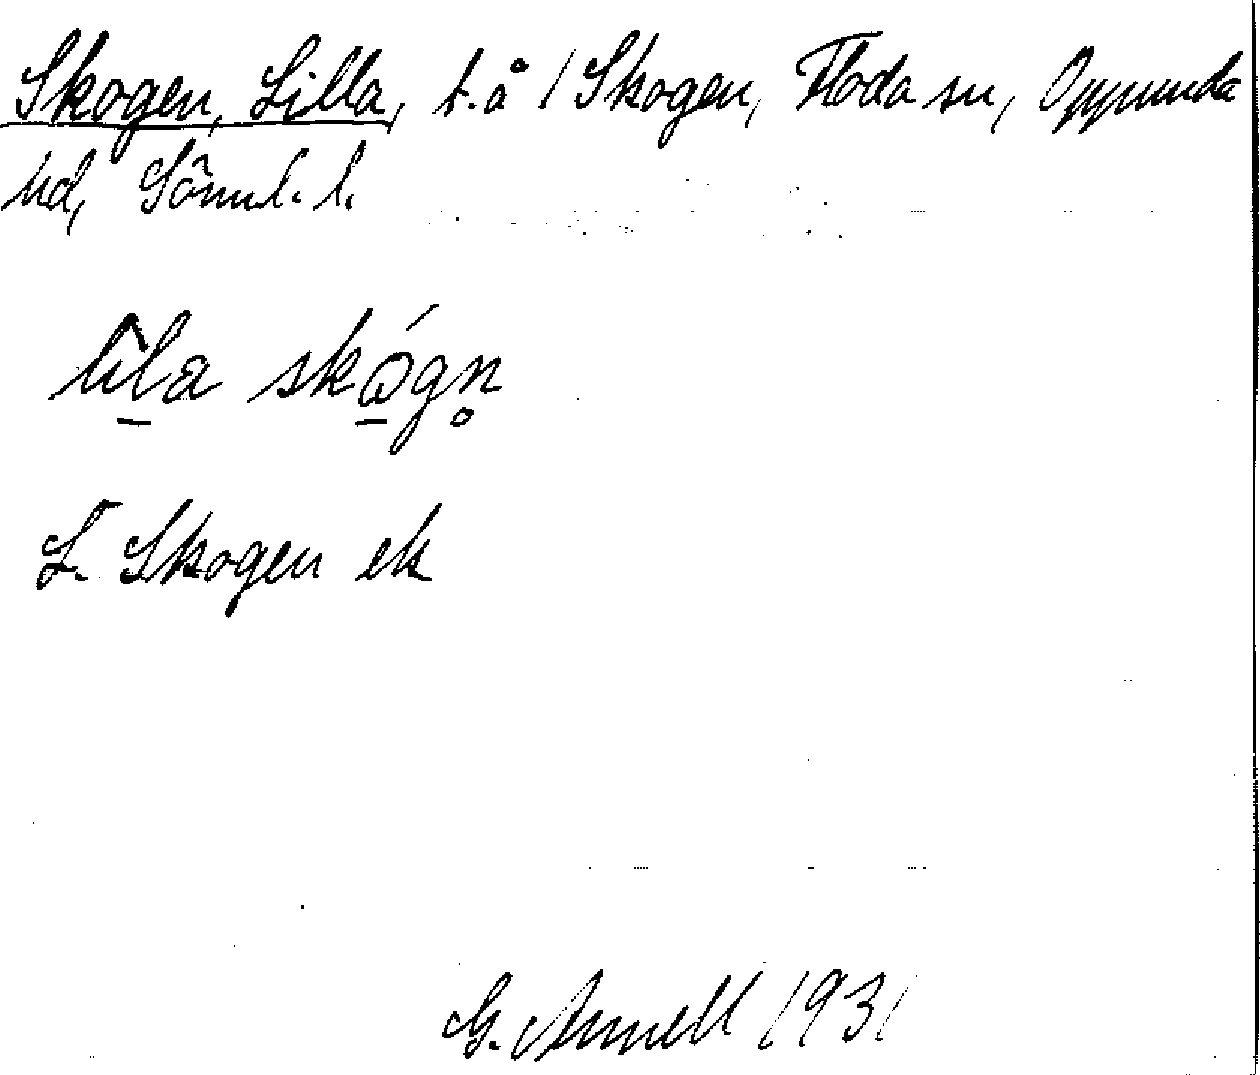 Skogen, Lilla, t.å 1 Skogen, Floda sn, Oppunda
hd, Söml. l.
lila skógn
L. Skogen ek
G. Annell 1931